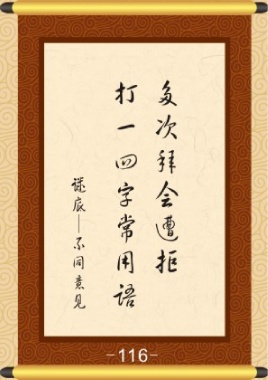 多次拜会遭拒
打一四字常用语
谜底——不同意见
-116-